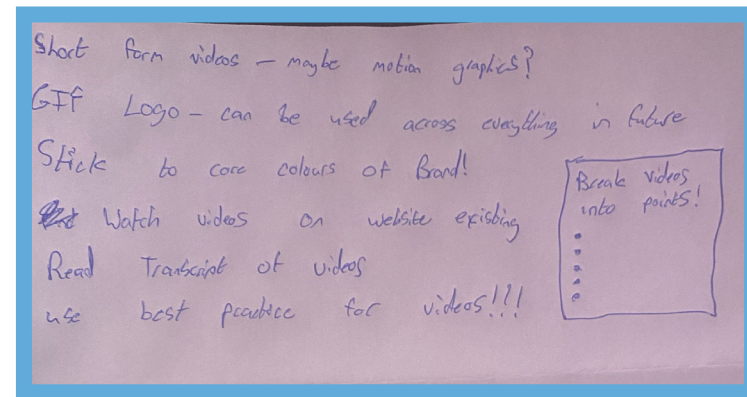 Short form videos – maybe motion graphics?
GIF Logo – can be used across everything in future
Stick to core colours of Brand!
Watch videos on website existing
Read Transcript of videos
use best practice for videos!!!
Break videos
into points!